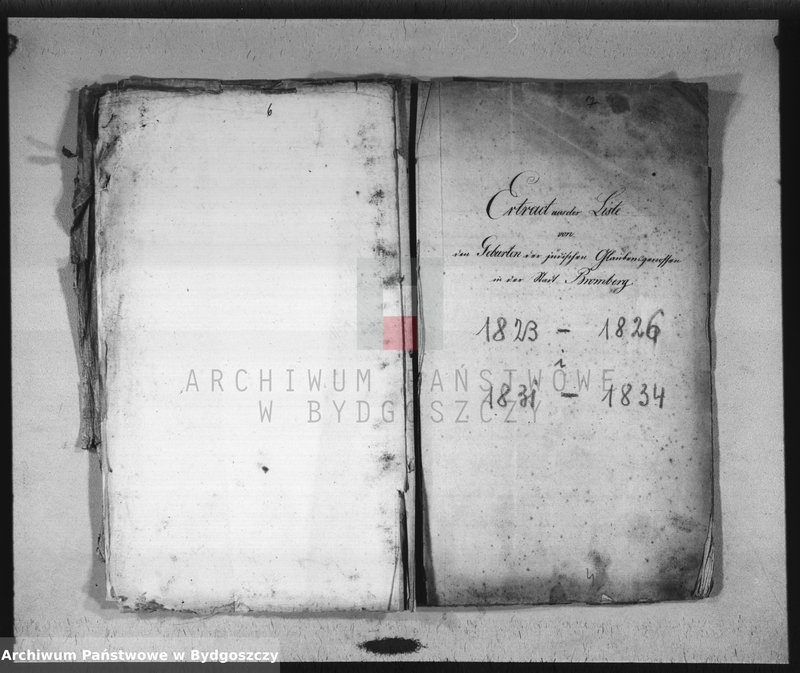 6
7
Extract aus der Liste
von
den Geburten der jüdischen Glaubensgenossen
in der Stadt Bromberg
1823 - 1826
i
1831 - 1834
ARCHIWUM PAŃSTWOWE
W BYDGOSZCZY
Archiwum Państwowe w Bydgoszczy